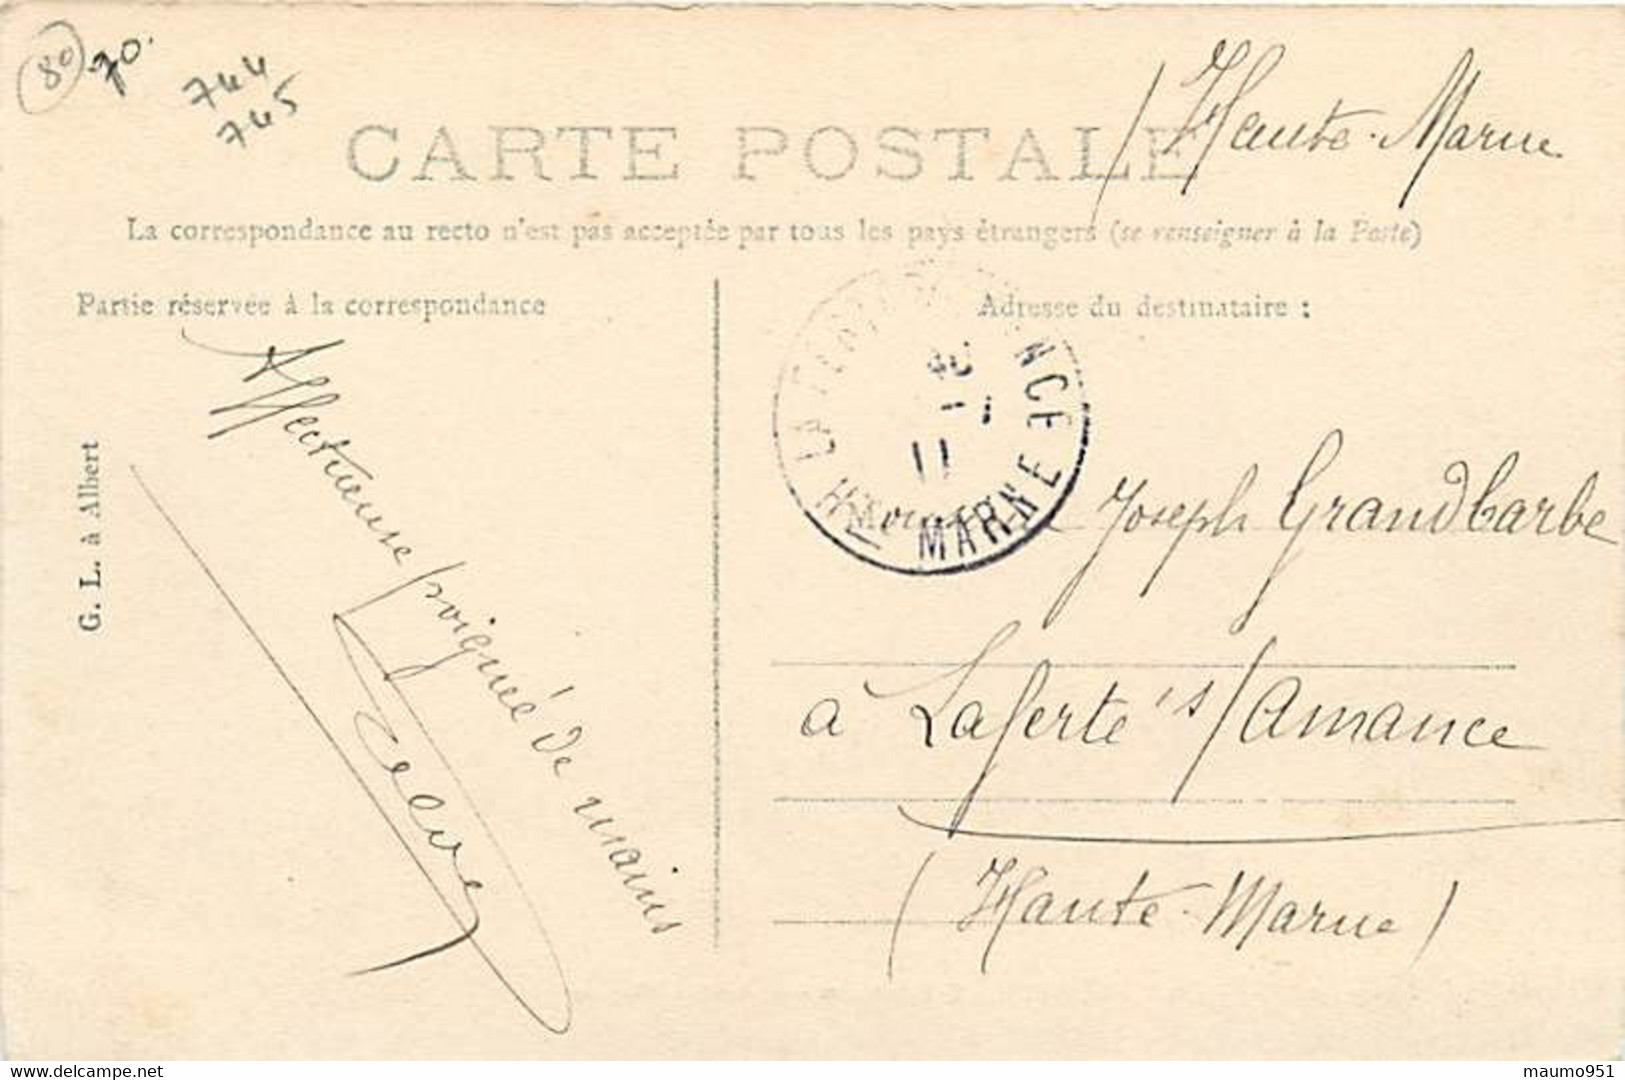 80
70.
744
745
CARTE POSTALE
( Haute-Marne
La correspondance au recto n'est pas acceptée par tous les pays étrangers (se renseigner à la Poste)
Partie réservée à la correspondance
Adresse du destinataire :
G. L. à Albert
Affectueuse poignée de mains
LA FERTE AMANCE
40
11
Hte MARNE
Joseph Grandbarbe
à Laferté s/ Amance
(Haute-Marne)
delcampe.net
maumo951